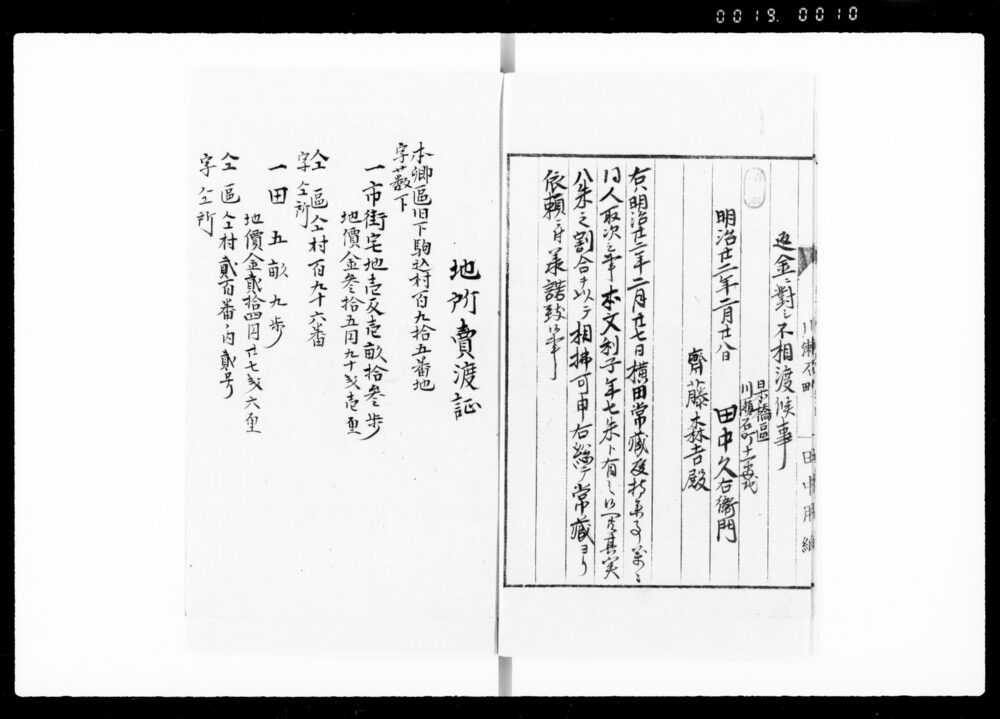 0019. 0010
返金ニ對シ不相渡候事
明治廿二年二月廿八日
日本橋區
川瀬石町十一番地
田中久右衛門
齊藤森吉殿
右ハ明治廿二年二月廿七日横田常藏
取次
本文利子年七朱ト有之
八朱之割合ヲ以テ相拂可申右総テ常藏ヨリ
依頼ニ付承諾致
川瀬石町 田中用紙
地所賣渡証
本郷區旧下駒込村百九拾五番地
字薮下
一市街宅地壱反壱畝拾叁歩
地價金叁拾五円九十戋壱厘
仝區仝村百九十六番
字仝所
一田五畝九歩
地價金貳拾四円廿七戋六厘
仝區仝村貳百番ノ内貳号
字仝所